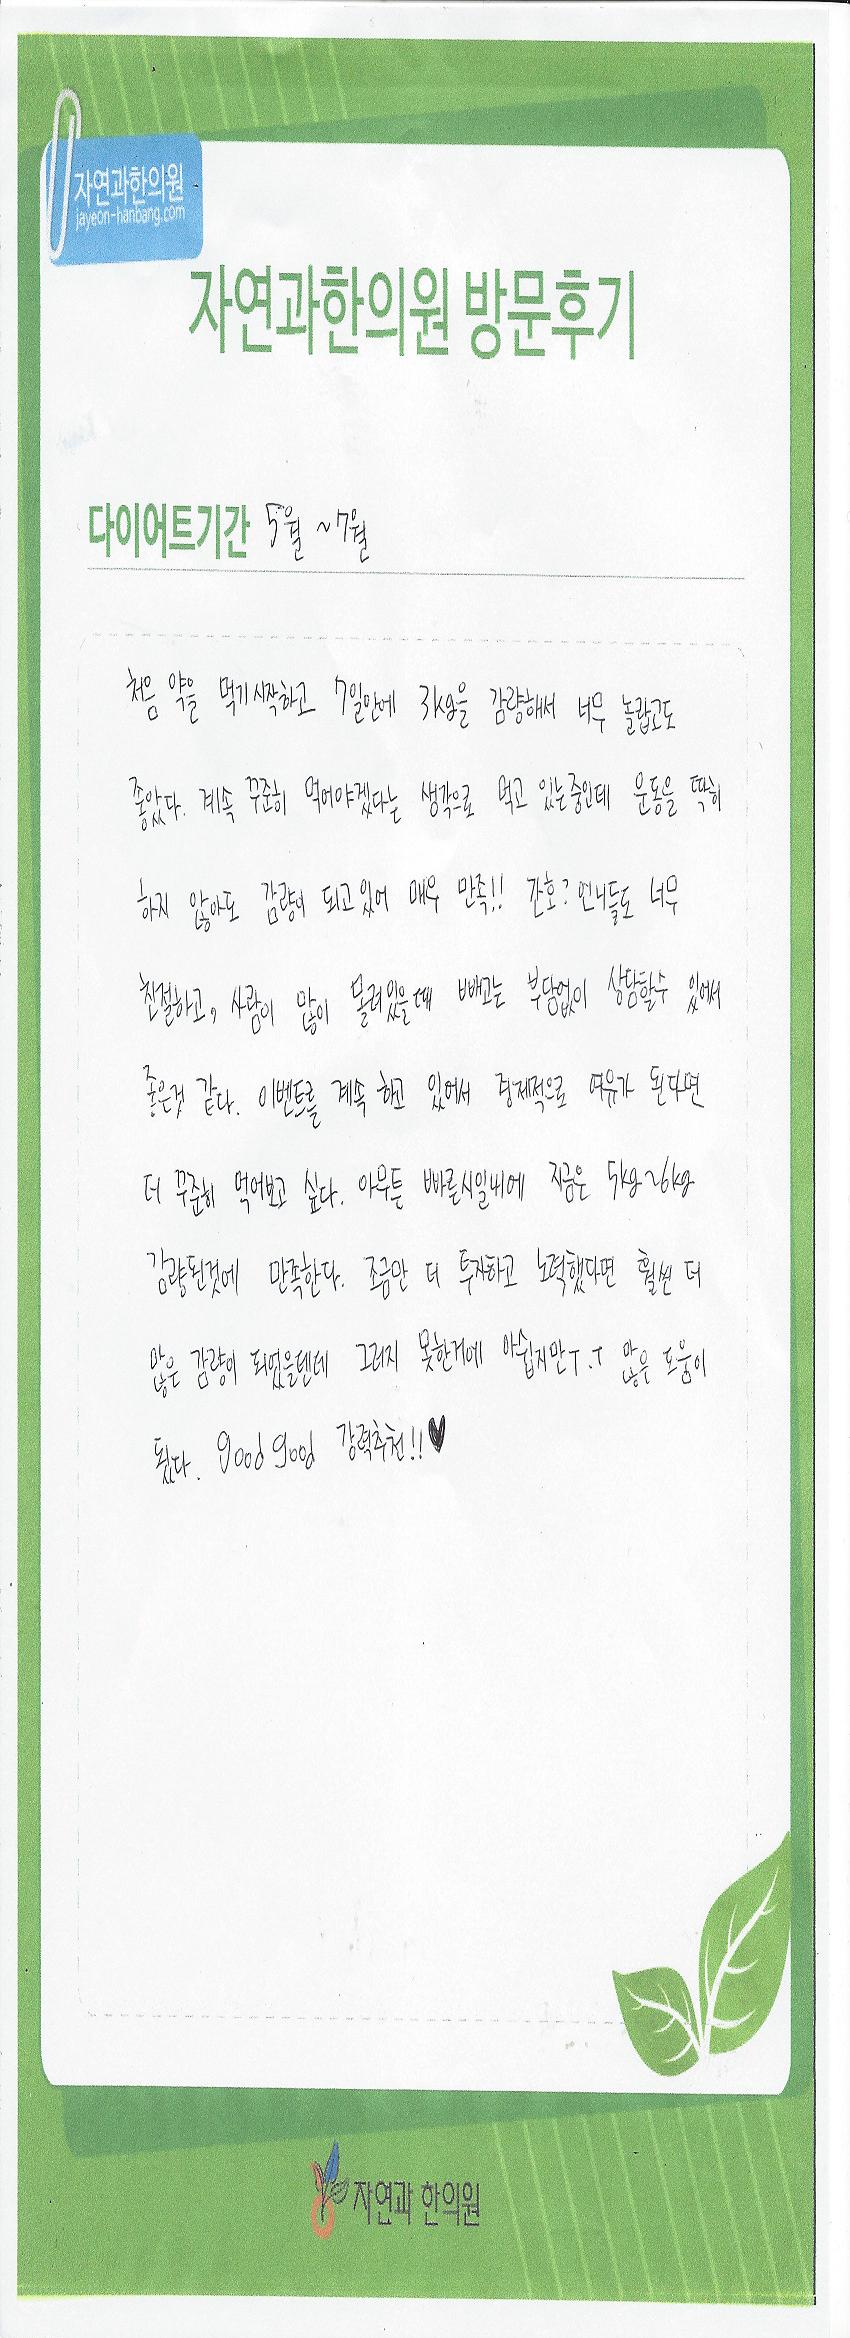 자연과한의원
jayeon-hanbang.com
자연과한의원 방문후기
다이어트기간 5월 ~7월
처음 약을 먹기시작하고 7일안에 3kg을 감량해서 너무 놀랍고도
좋았다. 계속 꾸준히 먹어야겠다는 생각으로 먹고 있는중인데 운동을 딱히
하지 않아도 감량이 되고있어 매우 만족!! 간호? 언니들도 너무
친절하고, 사람이 많이 몰려있을때 빼고는 부담없이 상담할수 있어서
좋은것 같다. 이벤트를 계속 하고 있어서 경제적으로 여유가 된다면
더 꾸준히 먹어보고 싶다. 아무튼 빠른시일내에 지금은 5kg~6kg
감량된것에 만족한다. 조금만 더 투자하고 노력했다면 훨씬 더
많은 감량이 되었을텐데 그러지 못한거에 아쉽지만T.T 많은 도움이
됬다. good good 강력추천!!♥
자연과 한의원